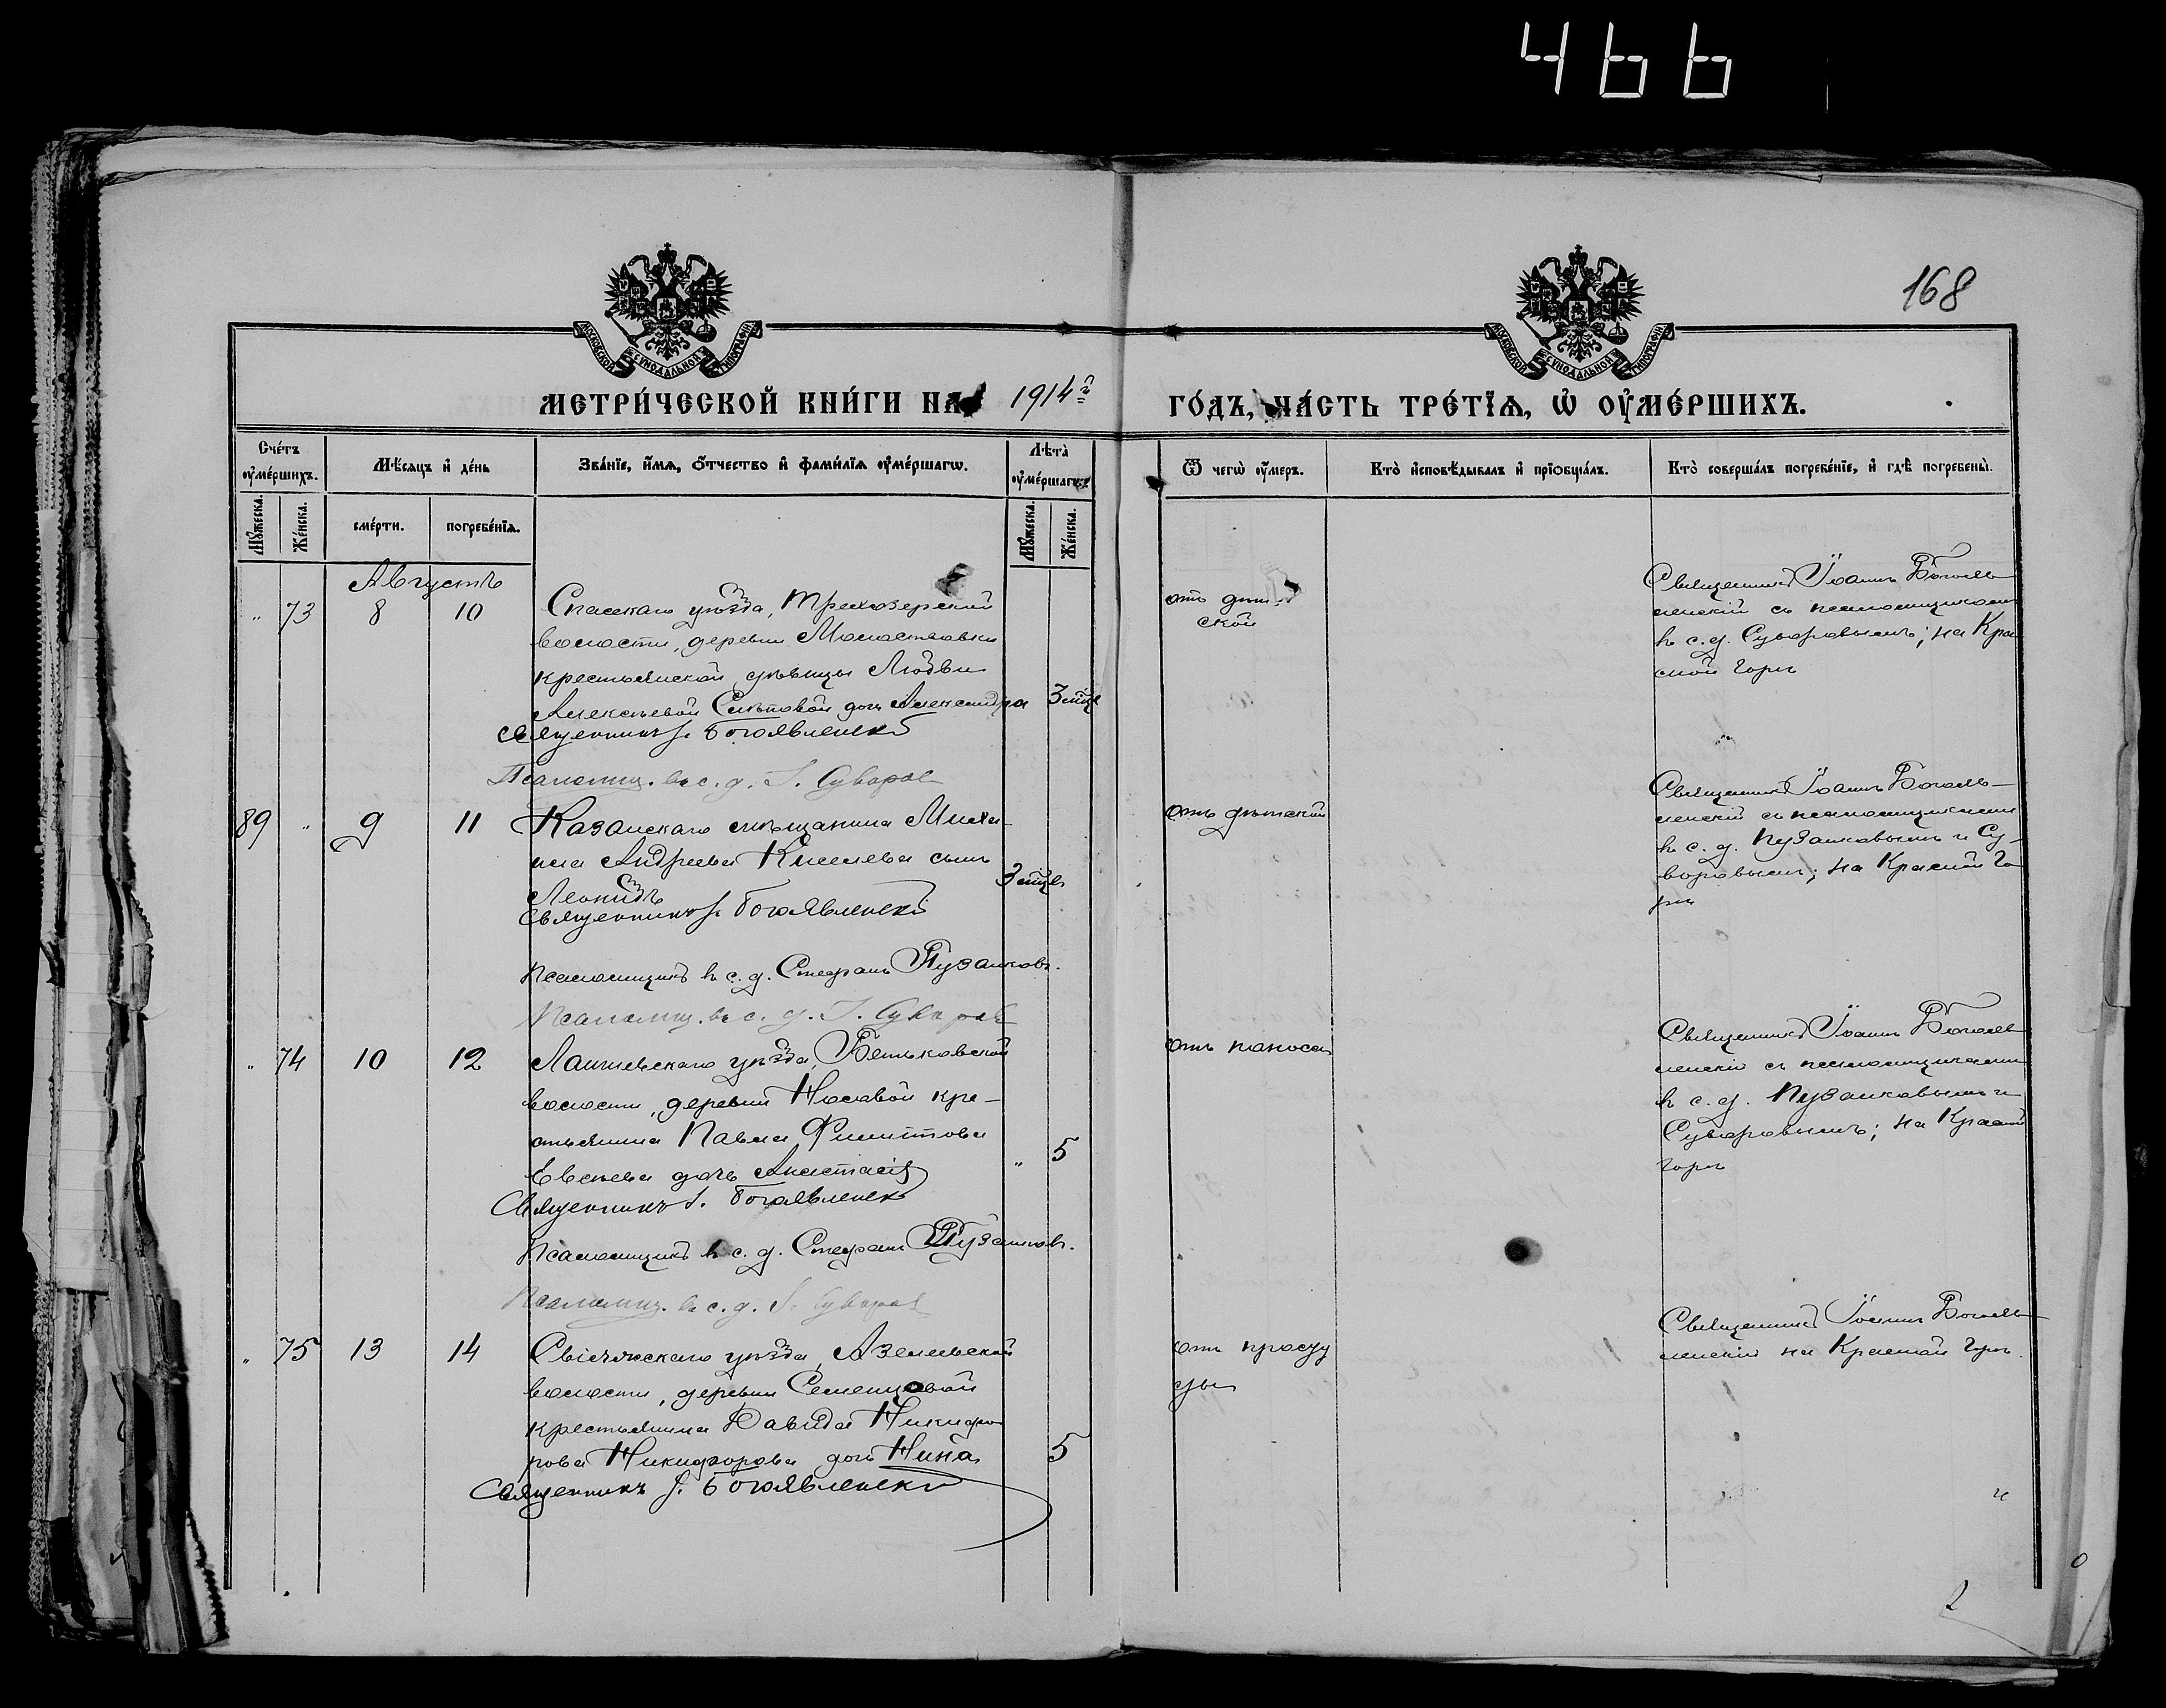 466
168
МОСКОВСКОЙ СУНОДАЛЬНОЙ ТИПОГРАФІИ
МОСКОВСКОЙ СУНОДАЛЬНОЙ ТИПОГРАФІИ
МЕТРИ́ЧЕСКОЙ КНИ́ГИ НА 1914й ГО́ДЪ, ЧА́СТЬ ТРЕ́ТІѦ, Ѡ ОУМЕ́РШИХЪ.
Сче́тъ оуме́ршихъ.
Мѣ́сяцъ и де́нь
Зва́нїе, и́мѧ, ѻ́тчество и фами́лїѧ оуме́ршагѡ.
Лѣта̀ оуме́ршагѡ.
Ѿ чегѡ̀ оу́меръ.
Кто̀ исповѣ́дывалъ и прїѡбща́лъ.
Кто̀ соверша́лъ погребе́нїе, и гдѣ̀ погребены̀.
Мꙋ́жеска.
Же́нска.
сме́рти.
погребе́нїѧ.
Мꙋ́жеска.
Же́нска.
Августъ
" 73 8 10
Спасскаго уѣзда, Трехозерской
волости, деревни
крестьянской дѣвицы Любви
Алексѣевой дочь Александра
3 мѣс
Священникъ І. Богоявленскій
Псаломщ. въ с. д. І. Суворов
отъ дѣт
ской
Священникъ Іоаннъ Богояв
ленскій съ псаломщикомъ
въ с. д. Суворовымъ; на Кра
сной Горѣ
89 " 9 11
Казанскаго мѣщанина Миха-
ила Андреева Киселева сынъ
Леонидъ
3 мѣс
Священникъ І. Богоявленскій
Псаломщикъ въ с. д. Стефанъ Пузанковъ.
Псаломщ. въ с. д. І. Суворов
отъ дѣтской
Священникъ Іоаннъ Богояв-
ленскій съ псаломщиками
въ с. д. Пузанковымъ и Су-
воровымъ; на Красной Го
рѣ
" 74 10 12
Лаишевскаго уѣзда, Бетьковской
волости, деревни Носовой кре-
стьянина Павла Филиппова
Евсѣева дочь Анастасія
" 5
Священникъ І. Богоявленск
Псаломщикъ въ с. д. Стефанъ Пузанковъ.
Псаломщ. въ с. д. І. Суворов
отъ поноса
Священникъ Іоаннъ Богояв
ленскій съ псаломщиками
въ с. д. Пузанковымъ и
Суворовымъ; на Красной
Горѣ
" 75 13 14
Свіяжскаго уѣзда, Азелевской
волости, деревни
крестьянина Давида Никифо
рова Никифорова дочь Нина
5
Священникъ І. Богоявленскій
отъ просту
ды
Священникъ Іоаннъ Богояв
ленскій на Красной Горѣ.